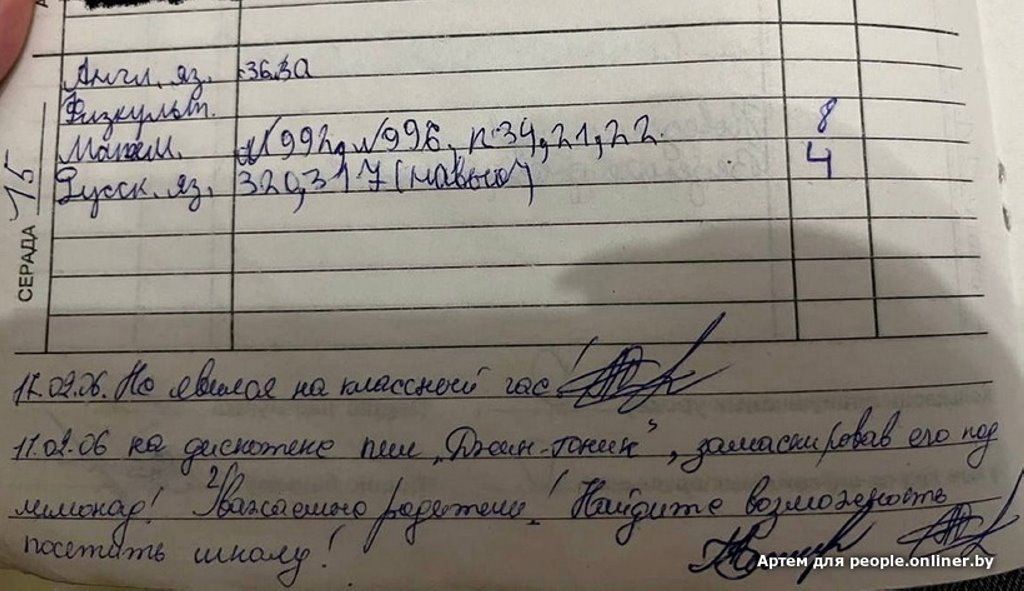 Англ. яз. с36.3а
Физкульт.
Матем. №992, №996, п.34,21,22. 8
Русск. яз. 320,317 (навыб) 4
СЕРАДА 15
17.02.06. Не явился на классный час!
11.02.06 на дискотеке пил „Джин-тоник”, замаскировав его под
лимонад! Уважаемые родители! Найдите возможность
посетить школу!
Артем для people.onliner.by